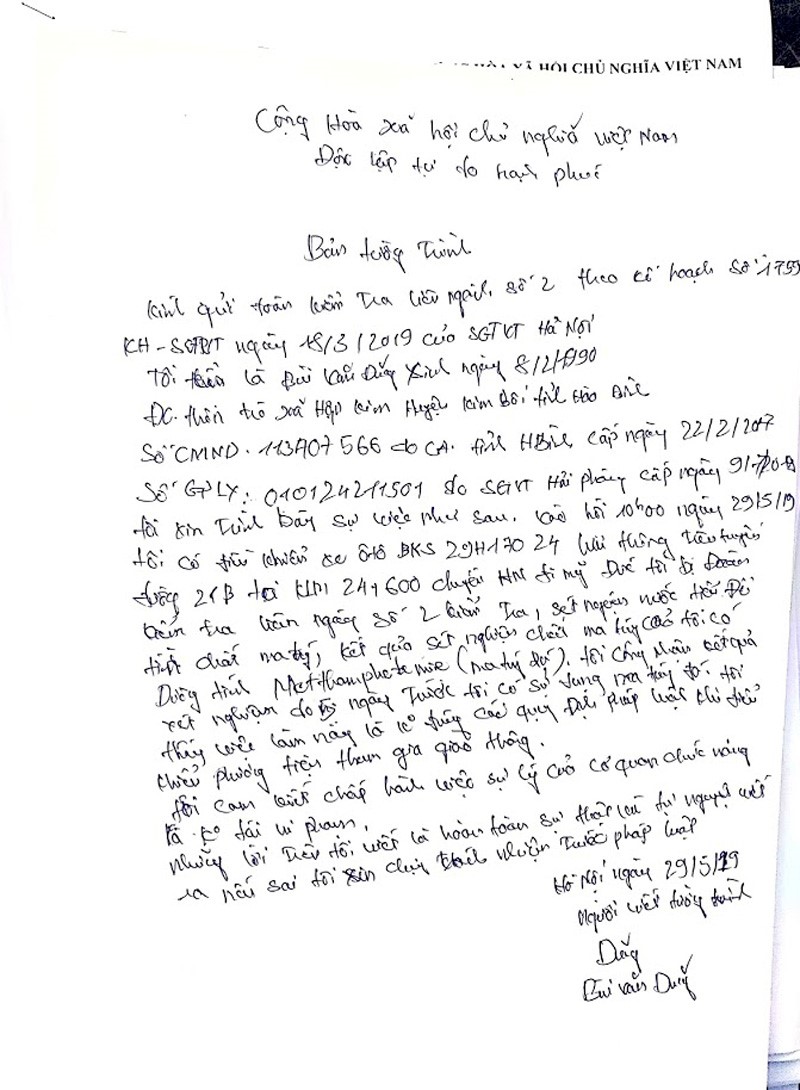 XÃ HỘI CHỦ NGHĨA VIỆT NAM
Cộng Hòa xã hội chủ nghĩa việt Nam
Độc lập tự do hạnh phúc
Bản tường Trình
kính gửi đoàn kiểm Tra liên ngành số 2 theo kế hoạch số 1799
KH-SGTVT ngày 18/3/2019 của SGTVT Hà Nội
Tôi tên là Bùi Văn Sinh ngày 8/2/1990
ĐC. thôn trò xã Hợp kim Huyện kim Bôi tỉnh Hòa Bình
Số CMND. 113A07566 do CA. tỉnh HBình cấp ngày 22/2/2017
Số GPLX: 010124211501 do SGTVT Hải phòng cấp ngày
tôi xin Trình bày sự việc như sau. vào hồi 10h00 ngày 29/5/19
tôi có điều khiển xe ôtô BKS 29H17024 lưu thông trên tuyến
đường 21B tại KM 24+600 chuyến HN đi mỹ Đức tôi bị Đoàn
kiểm tra liên ngàng số 2 kiểm Tra, sét nghiệm nước tiểu Để
tìm chất ma túy, kết quả sét nghiệm chất ma túy của tôi có
Dương tính Metthamphetamie (ma túy đá). tôi công nhận kết quả
xét nghiệm do ngày Trước tôi có sử dụng ma túy đá. tôi
thấy việc làm này là ko đúng các quy Định pháp luật khi điều
khiển phương tiện tham gia giao thông.
tôi cam kết chấp hành việc sự lý của cơ quan chức năng
và ko tái vi phạm.
những lời Trên tôi viết là hoàn toàn sự thật và tự nguyện viết
ra nếu sai tôi xin chịu trách nhiệm Trước pháp luật
Hà Nội ngày 29/5/19
người viết tường trình
Bùi văn